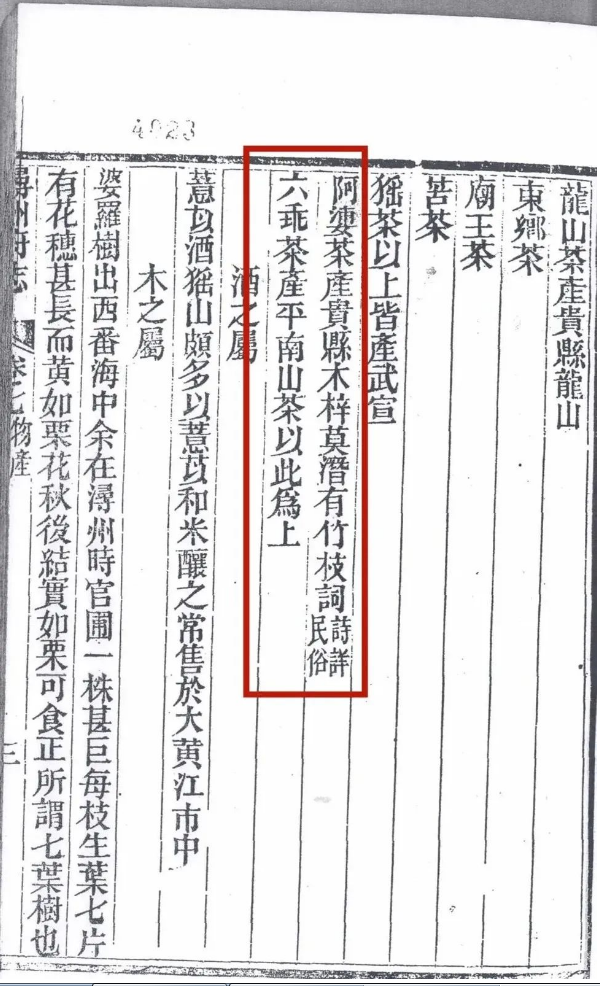 4023
龍山茶產貴縣龍山
東鄉茶
廟王茶
苦茶
猺茶以上皆產武宣
阿婆茶產貴縣木梓莫潛有竹枝詞詩詳民俗
六乖茶產平南山茶以此爲上
酒之屬
薏苡酒猺山頗多以薏苡和米釀之常售於大黃江市中
木之屬
婆羅樹出西番海中余在潯州時官圃一株甚巨每枝生葉七片
有花穗甚長而黃如栗花秋後結實如栗可食正所謂七葉樹也
潯州府志
卷七物產
三